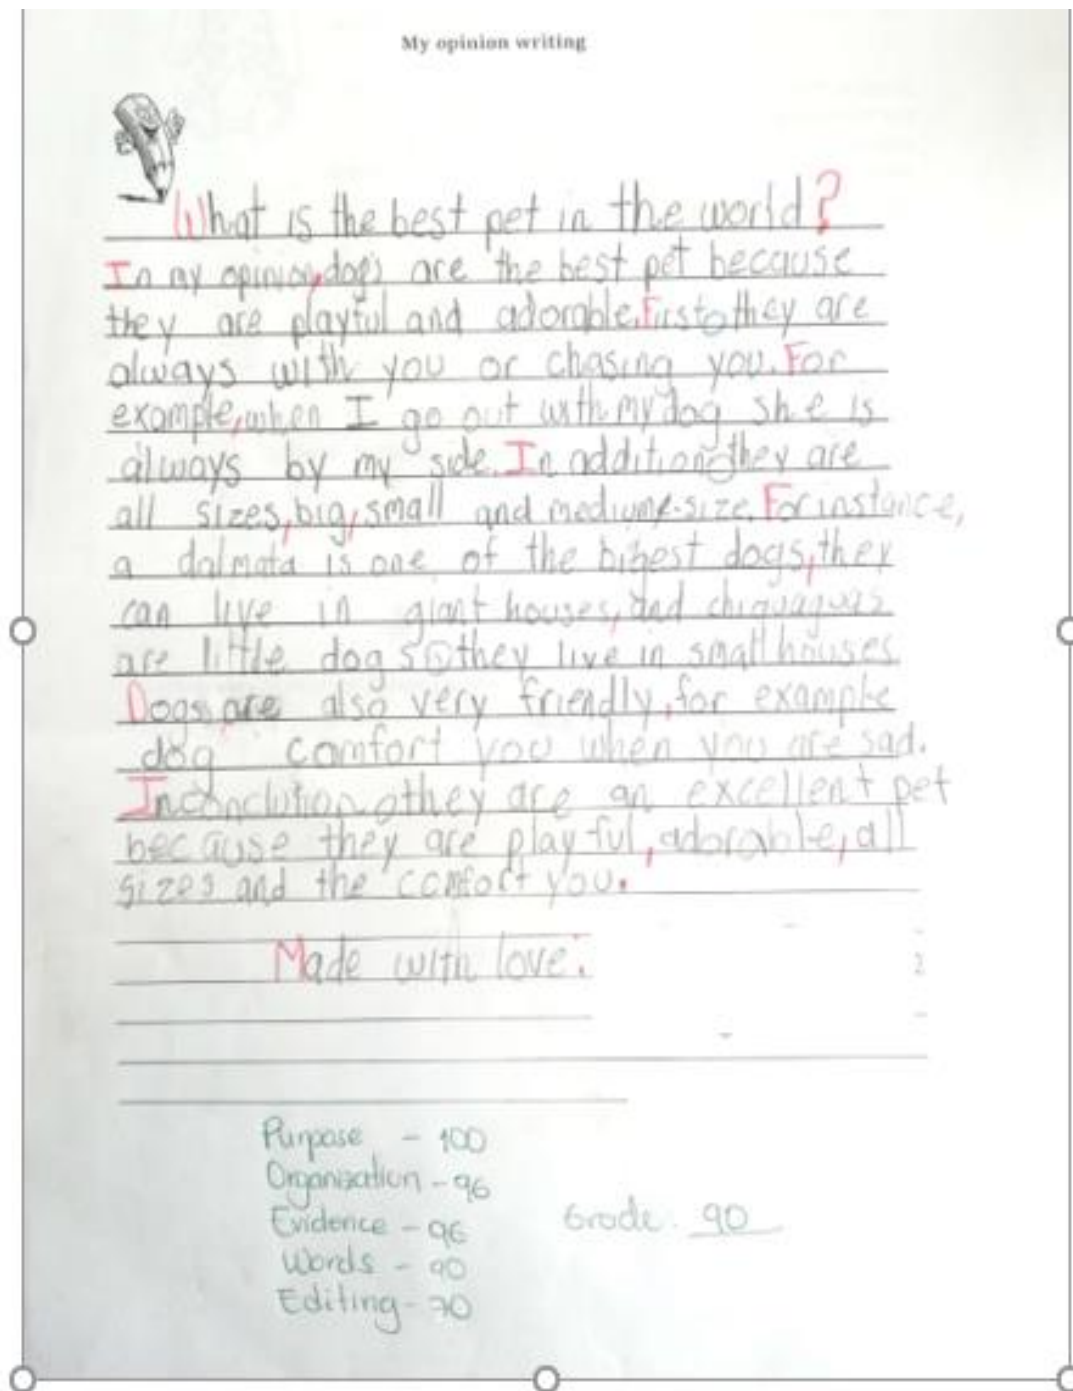 My opinion writing
What is the best pet in the world?
In my opinion, dogs are the best pet because
they are playful and adorable. First, they are
always with you or chasing you. For
example, when I go out with my dog she is
always by my side. In addition, they are
all sizes, big, small and medium-size. For instance,
a dalmata is one of the bigest dogs, they
can live in giant houses, and chiguaguas
are little dogs, they live in small houses.
Dogs are also very friendly, for example
dog comfort you when you are sad.
In conclution, they are an excellent pet
because they are playful, adorable, all
sizes and the comfort you.
Made with love:
Purpose - 100
Organization - 96
Evidence - 96
Words - 90
Editing - 70
Grade: 90